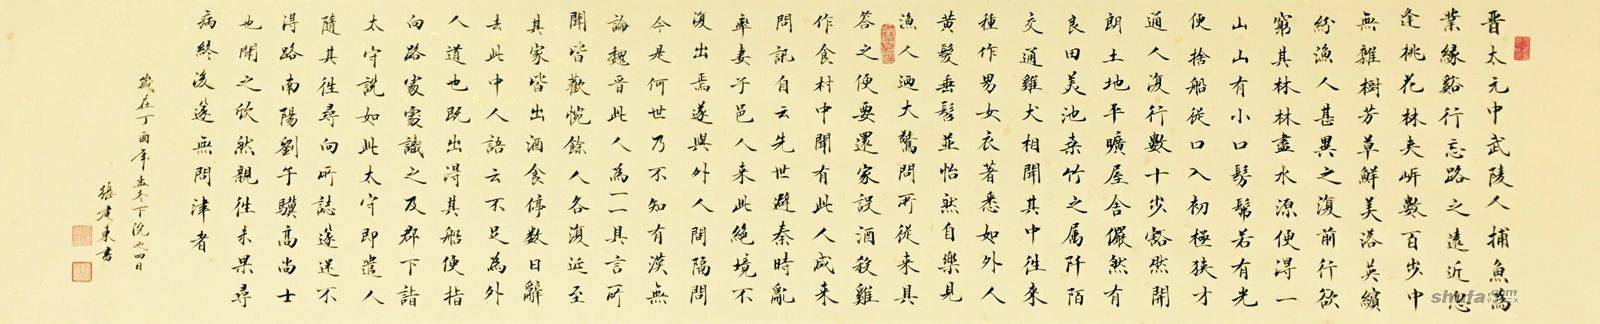 晉太元中武陵人捕魚為
業緣谿行忘路之遠近忽
逢桃花林夾岸數百步中
無雜樹芳草鮮美落英繽
紛漁人甚異之復前行欲
窮其林林盡水源便得一
山山有小口髣髴若有光
便捨船從口入初極狹才
通人復行數十步豁然開
朗土地平曠屋舍儼然有
良田美池桑竹之属阡陌
交通雞犬相聞其中往來
種作男女衣著悉如外人
黃髮垂髫並怡然自樂見
漁人迺大驚問所從来具
答之便要還家設酒殺雞
作食村中聞有此人咸来
問訊自云先世避秦時亂
率妻子邑人来此絕境不
復出焉遂與外人間隔問
今是何世乃不知有漢無
論魏晉此人為一一具言所
聞皆歎惋餘人各復延至
其家皆出酒食停数日辭
去此中人語云不足為外
人道也既出得其船便
向路處處之及郡下詣
太守說如此太守即遣人
隨其往尋向所誌遂迷不
得路南陽劉子驥高尚士
也聞之欣然親往未果尋
病終後遂無問津者
歲在丁酉年孟冬下浣之四日
張建東書
shufa.com